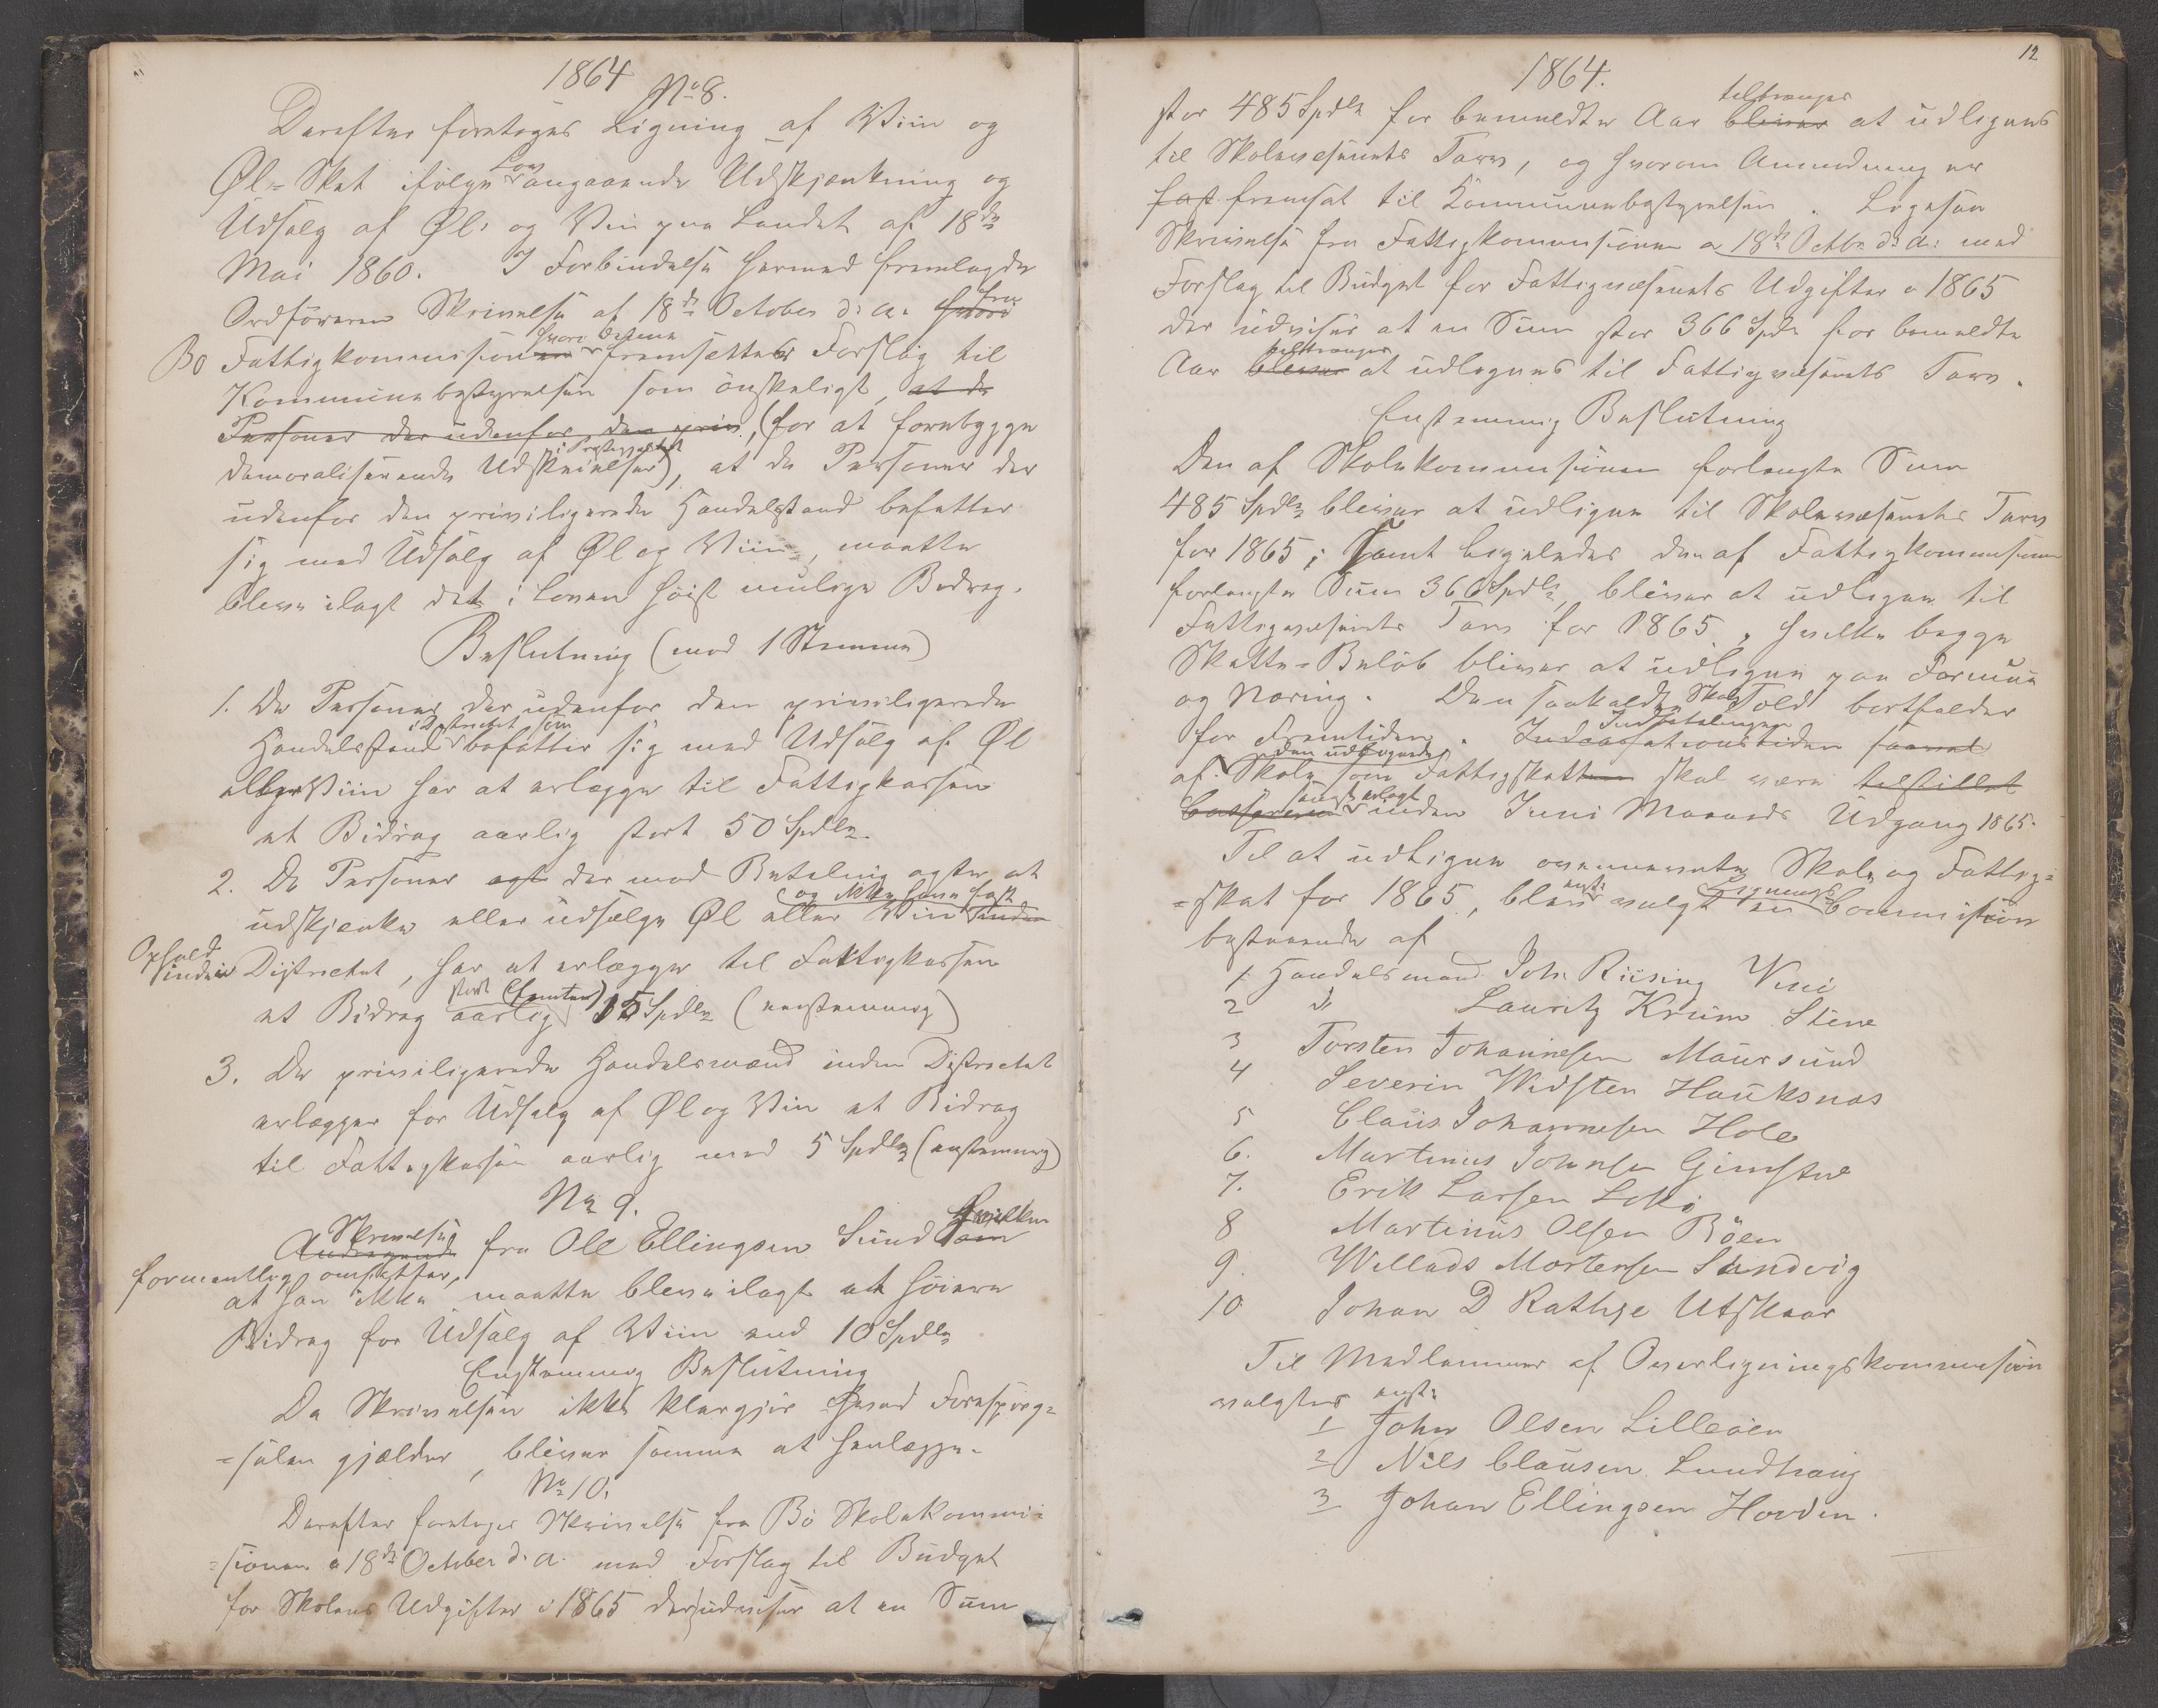 1864
No 8.
Derefter foretoges Ligning af Viin og
Øl-Skat ifølge Lov angaaende Udskjænkning og
Udsalg af Øl og Vin paa Landet af 18de
Mai 1860. I Forbindelse hermed fremlagde
Ordføreren Skrivelse af 18de October d. A. fra
Bø Fattigkommission hvori denne fremsætter Forslag til
Kommunebestyrelsen som ønskeligt, at de
Personer der udenfor den priv, (for at forebygge
demoraliserende Udskeielser i Præstegjeldet), at de Personer der
udenfor den priviligerede Handelsstand befatter
sig med Udsalg af Øl og Viin, maatte
blive ilagt det i Loven høist mulige Bidrag.
Beslutning (mod 1 Stemme)
1. De Personer der udenfor den priviligerede
Handelsstand i Districtet som befatter sig med Udsalg af Øl
eller Viin har at erlægge til Fattigkassen
et Bidrag aarlig stort 50 Spdlr.
2. De Personer der mod Betaling agter at
udskjænke eller udsælge Øl eller Viin og ikke have fast
Ophold inden Districtet, har at erlægge til Fattigkassen
et Bidrag aarlig stort (femten) 15 Spdlr (eenstemmig)
3. De priviligerede Handelsmænd inden Districtet
erlægger for Udsalg af Øl og Vin et Bidrag
til Fattigkassen aarlig med 5 Spdlr (enstemmig)
No 9.
Skrivelse fra Ole Ellingsen Sund hvilken
formentlig omhandler,
at han ikke maatte blive ilagt et høiere
Bidrag for Udsalg af Viin end 10 Spdlr
Enstemmig Beslutning
Da Skrivelsen ikke klargjør hvad Forespørg=
=selen gjælder, bliver samme at henlægge.
No 10.
Derefter foretoges Skrivelse fra Bø Skolekommi=
=sionen a 18de October d. A. med Forslag til Budget
for Skolens Udgifter i 1865 der udviser at en Sum
12
1864.
stor 485 Spdlr for bemeldte Aar tiltrænges at udlignes
til Skolevæsenets Tarv, og hvorom Anmodning er
fremsat til Kommunebestyrelsen. Ligesaa
Skrivelse fra Fattigkommisionen a 18de Octbr d. A. med
Forslag til Budget for Fattigvæsenets Udgifter i 1865
der udviser at en Sum stor 366 Spdlr for bemeldte
Aar tiltrænges at udlignes til Fattigvæsenets Tarv.
Enstemmig Beslutning
Den af Skolekommisionen forlangte Sum
485 Spdlr bliver at udligne til Skolevæsenets Tarv
for 1865; Samt ligeledes den af Fattigkommisionen
forlangte Sum 366 Spdlr, bliver at udligne til
Fattigvæsenets Tarv for 1865, hvilke begge
Skatte-Beløb bliver at udligne paa Formue
og Næring. Den saakaldte Skole Told bortfalder
for Fremtiden. Indbetalingen
af den udlignede Skole som Fattigskat skal være
senest erlagt inden Juni Maaneds Udgang 1865.
Til at udligne ovennævnte Skole og Fattig=
=skat for 1865, blev enst. valgt en Lignings Commision
bestaaende af
1. Handelsmand Joh. Riising Vini
2 " Lauritz Krüm Stene
3 Torsten Johannesen Maursund
4 Severin Widsten Hauksnæs
5 Claus Johannesen Hole
6. Martinus Johnsen Gimstad
7. Erik Larsen Lokø
8 Martinus Olsen Böen
9. Willads Mortensen Sandvig
10 Johan D Rathje Utskaar
Til Medlemmer af Overligningskommision
valgtes enst.
1 John Olsen Lilleøen
2 Nils Clausen Lundhaug
3 Johan Ellingsen Hovden.